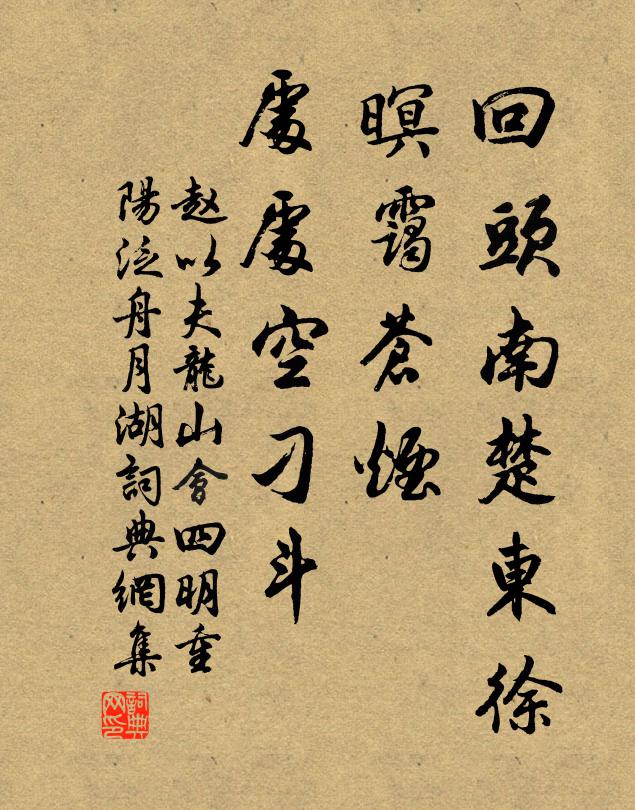 回頭南楚東徐
暝靄蒼煙
處處空刁斗
赵以夫龍山會四明重
陽泛舟月湖詞典網集
詞典网印